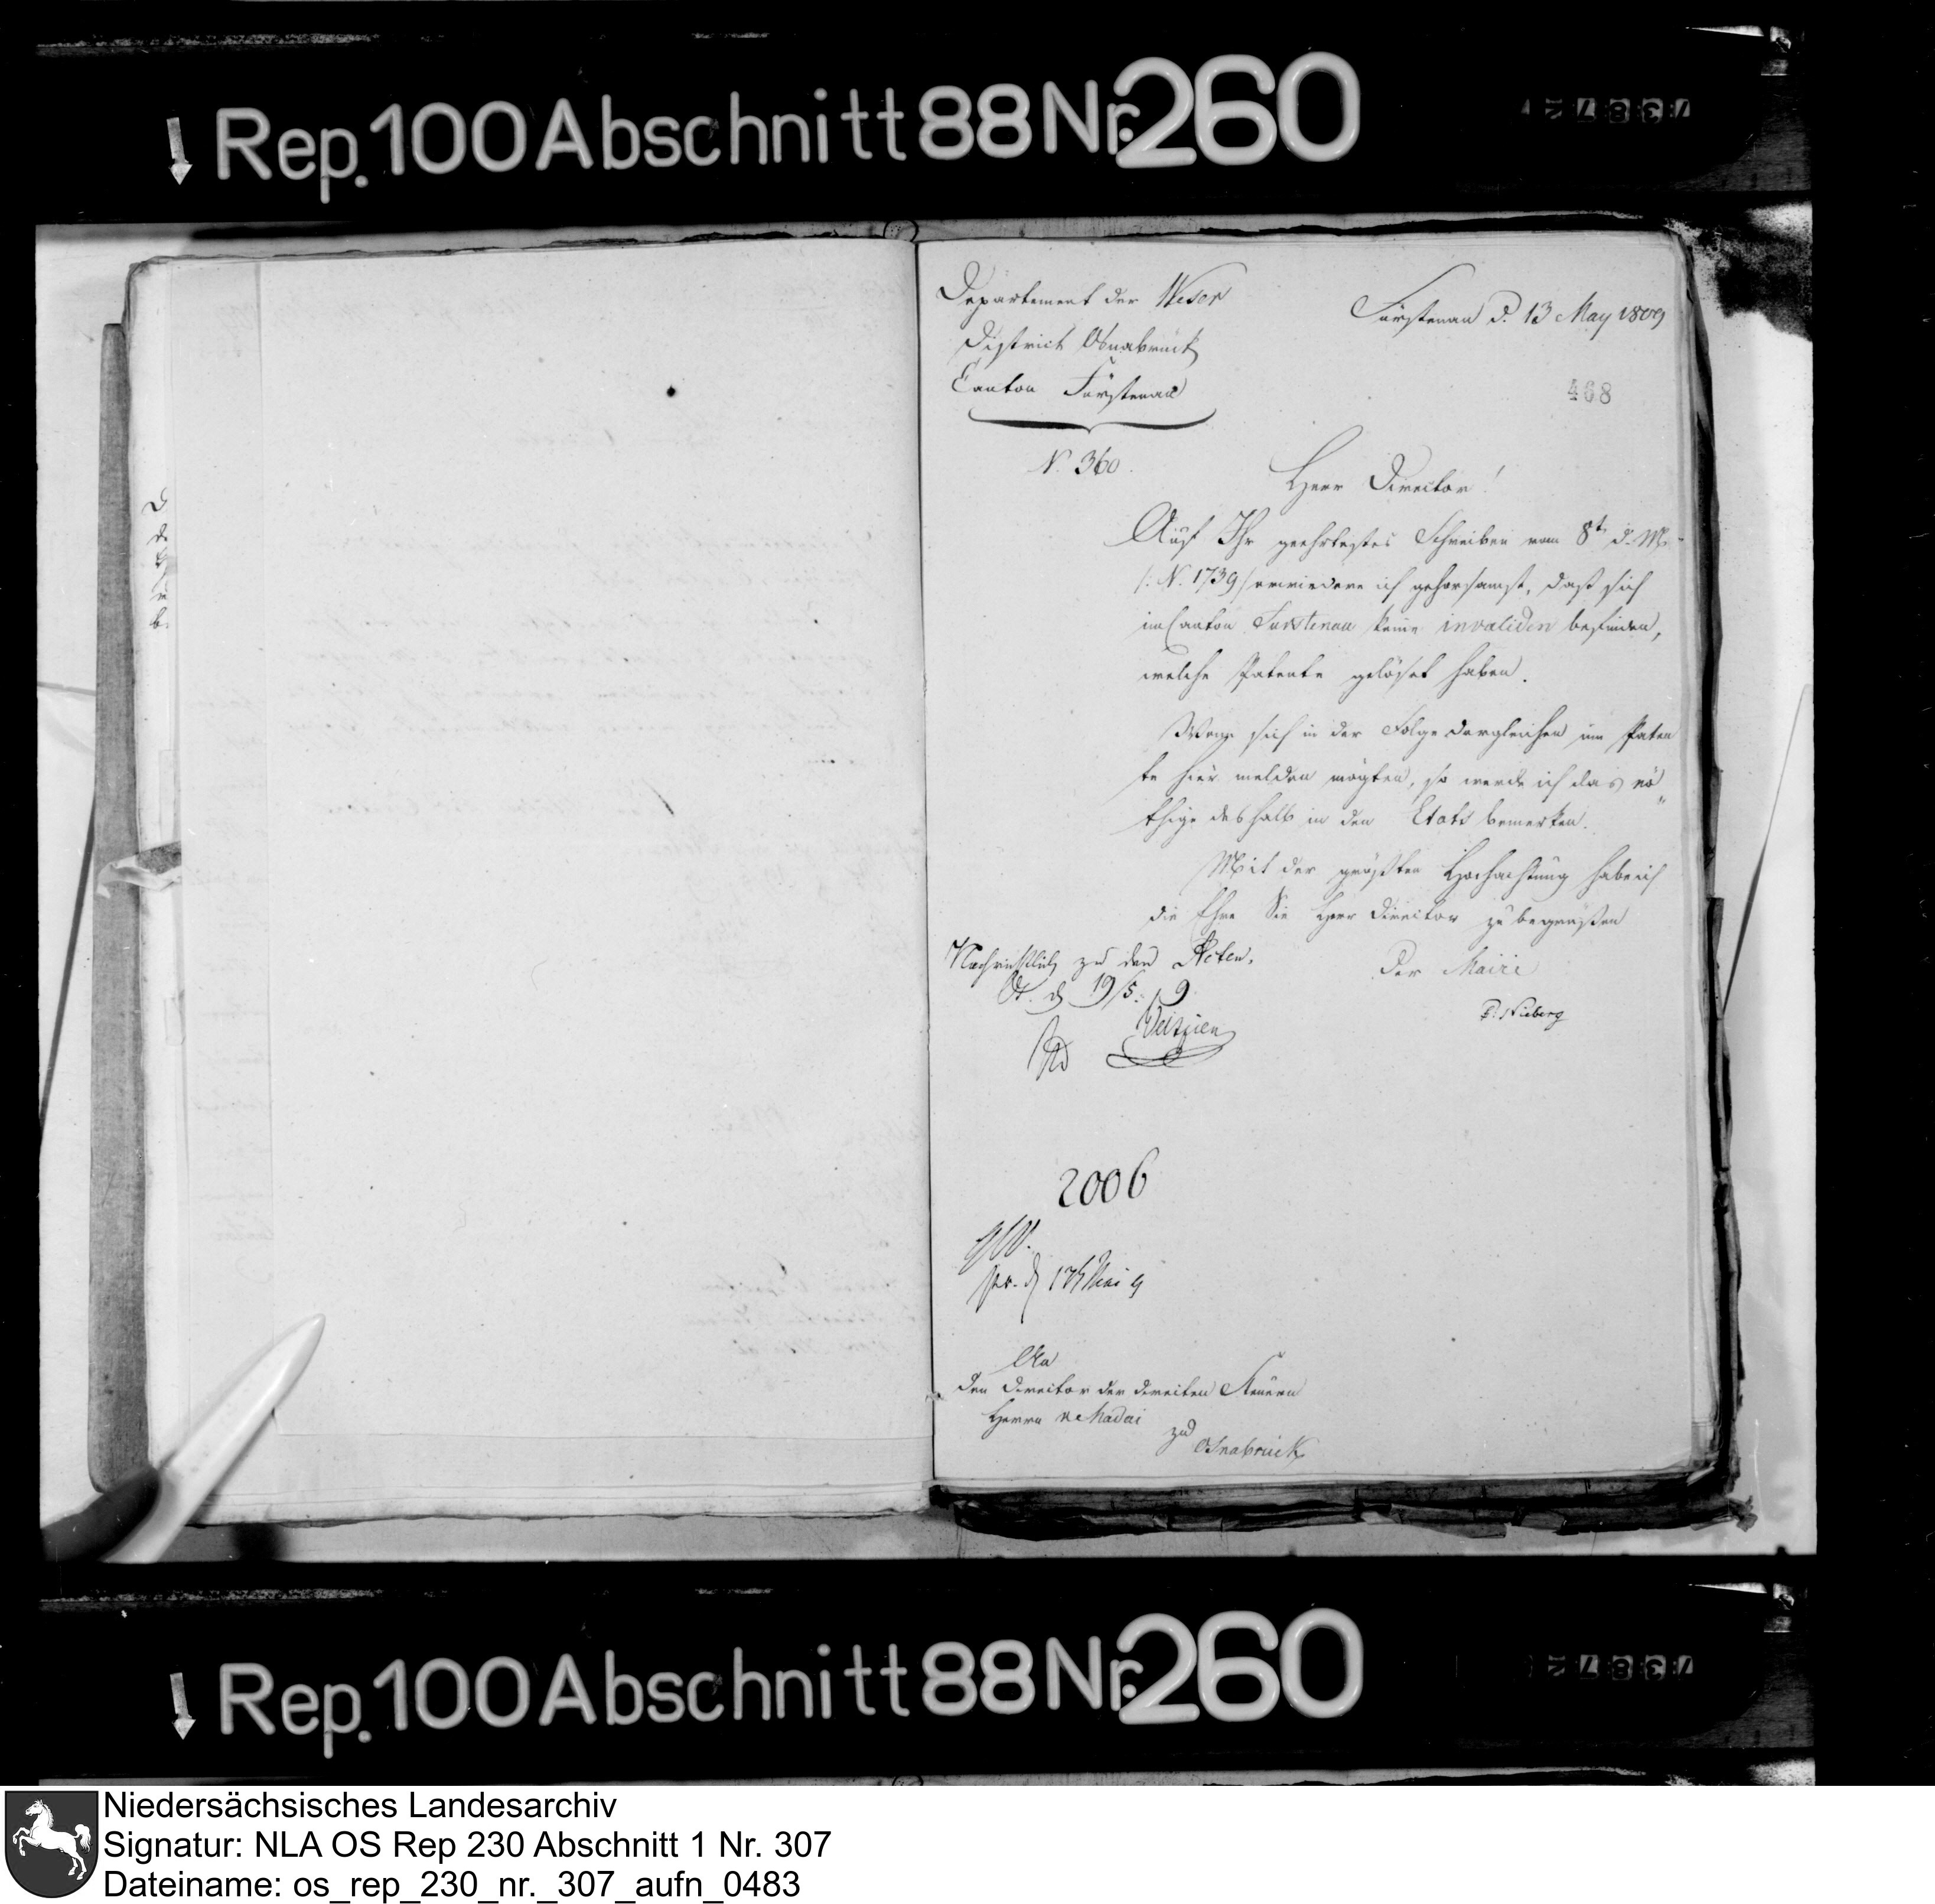 Rep. 100 Abschnitt 88 Nr. 260
Departement der Weser
District Osnabrück
Canton Fürstenau
N. 360.
Fürstenau d. 13 May 1809
468
Herr Director!
Auf Ihr geehrtestes Schreiben vom 8t d. M.
/: N. 1739/ erwiedere ich gehorsamst, daß sich
im Canton Furstenau keine invaliden befinden,
welche Patente gelöset haben.
Wenn sich in der Folge dergleichen um Paten
te hier melden mögten, so werde ich das nö
thige deshalb in den Etats bemerken.
Mit der größten Hochachtung habe ich
die Ehre Sie Herr Director zu begrüßen
Der Maire
Nieberg
Nachrichtlich zu den Acten.
19/5. 9
2006
pr. d 17 Mai 9
An
den Director der direiten Steuern
Herrn v Madai
zu Osnabrück
Rep. 100 Abschnitt 88 Nr. 260
Niedersächsisches Landesarchiv
Signatur: NLA OS Rep 230 Abschnitt 1 Nr. 307
Dateiname: os_rep_230_nr._307_aufn_0483